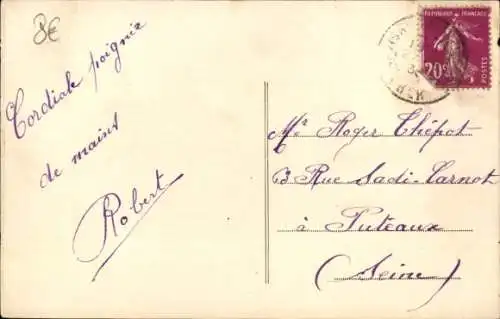 8€
Cordiale poignée
de mains
Robert
REPUBLIQUE FRANÇAISE
20c
POSTES
Mr Roger Thépot
3 Rue Sadi-Carnot
à Puteaux
(Seine)